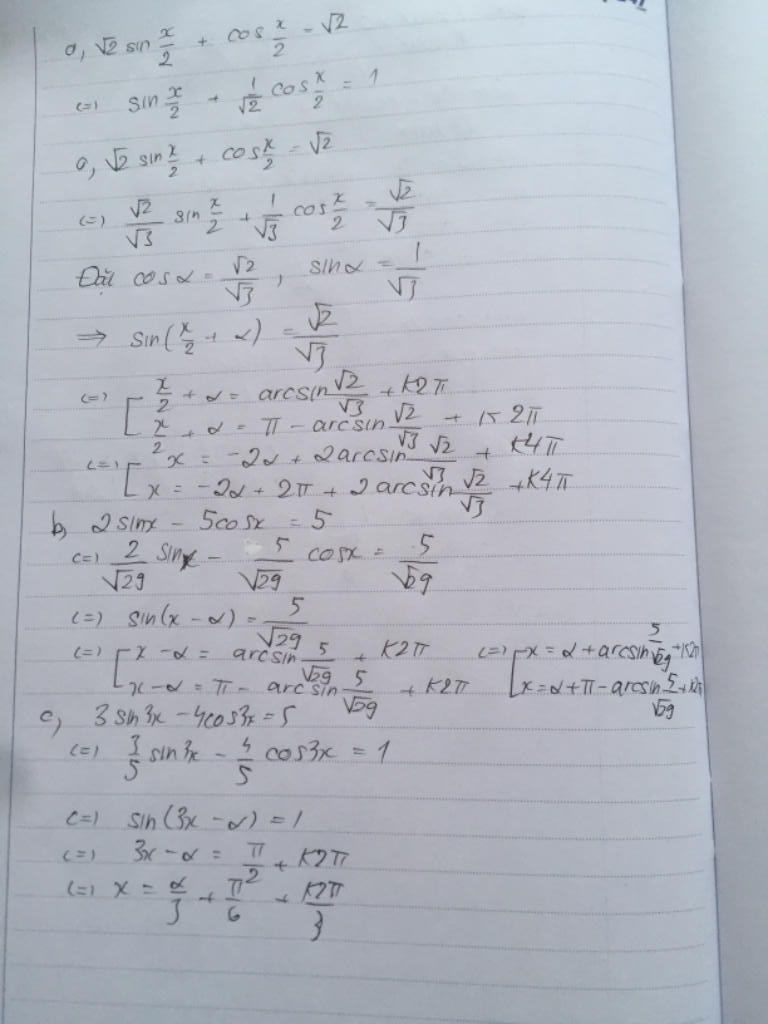 a, √2 sin x/2 + cos x/2 = √2
<=> sin x/2 + 1/√2 cos x/2 = 1
a, √2 sin x/2 + cos x/2 = √2
<=> √2/√3 sin x/2 + 1/√3 cos x/2 = √2/√3
Đặt cosα = √2/√3, sinα = 1/√3
=> sin(x/2 + α) = √2/√3
<=> [ x/2 + α = arcsin √2/√3 + k2π
x/2 + α = π - arcsin √2/√3 + k2π
<=> [ x = -2α + 2arcsin √2/√3 + k4π
x = -2α + 2π + 2arcsin √2/√3 + k4π
b, 2sinx - 5cosx = 5
<=> 2/√29 sinx - 5/√29 cosx = 5/√29
<=> sin(x - α) = 5/√29
<=> [ x - α = arcsin 5/√29 + k2π <=> [ x = α + arcsin 5/√29 + k2π
x - α = π - arcsin 5/√29 + k2π x = α + π - arcsin 5/√29 + k2π
c, 3sin3x - 4cos3x = 5
<=> 3/5 sin3x - 4/5 cos3x = 1
<=> sin(3x - α) = 1
<=> 3x - α = π/2 + k2π
<=> x = α/3 + π/6 + k2π/3